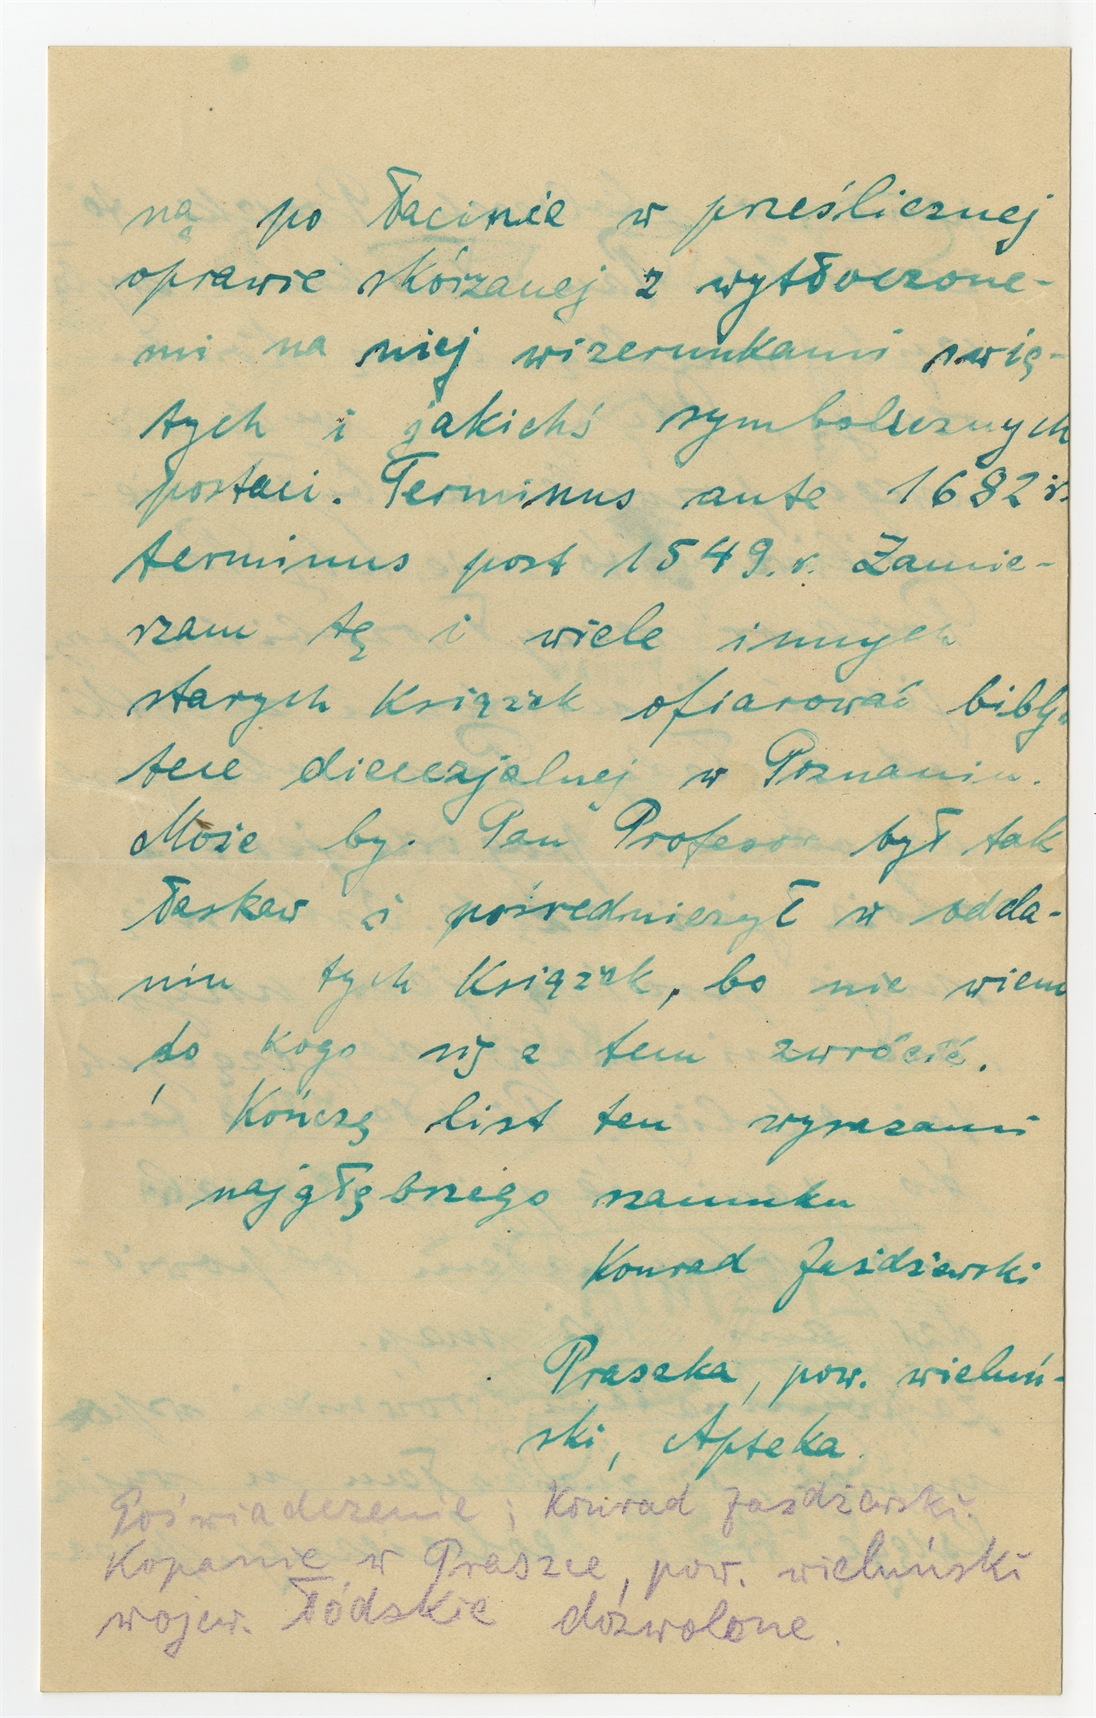 ną po łacinie w prześlicznej
oprawie skórzanej z wytłoczone-
mi na niej wizerunkami świę-
tych i jakichś symbolicznych
postaci. Terminus ante 1682 r.
terminus post 1549. r. Zamie-
rzam tę i wiele innych
starych książek ofiarować bibljo
tece diecezjalnej w Poznaniu.
Może by. Pan Profesor był tak
łaskaw i pośredniczył w odda-
niu tych książek, bo nie wiem
do kogo się z tem zwrócić.
Kończę list ten wyrazami
najgłębszego szacunku
Konrad Jażdżewski
Praszka, pow. wieluń-
ski, Apteka.
Poświadczenie; Konrad Jażdżewski.
Kopanie w Praszce, pow. wieluński
wojew. łódzkie dozwolone.